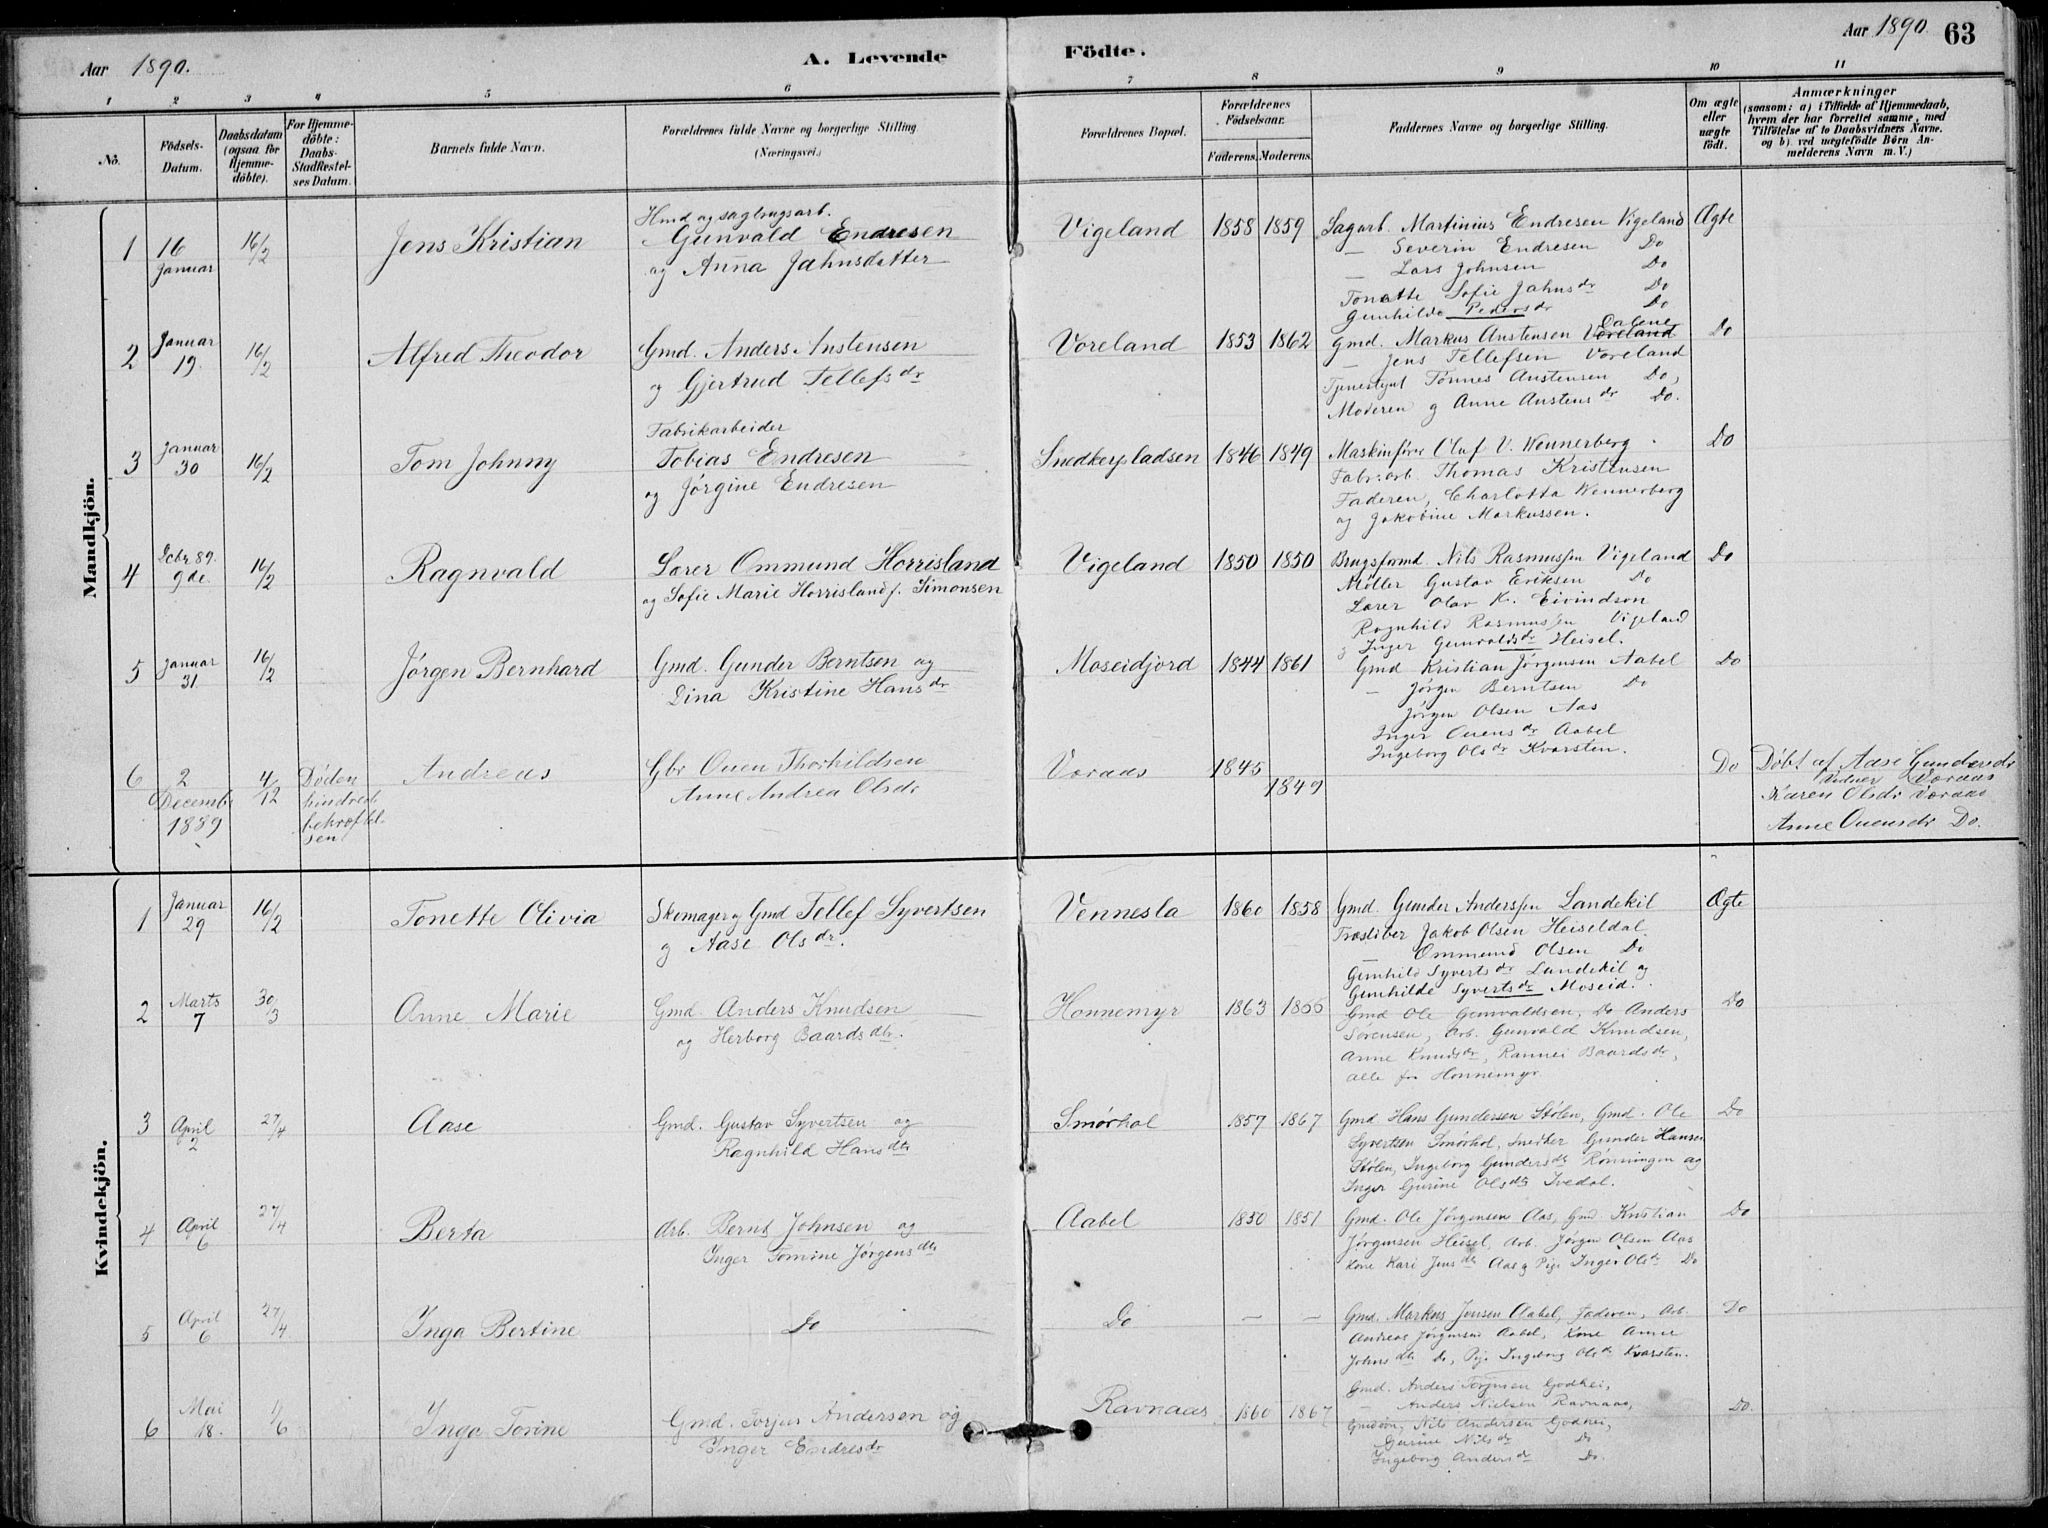 Aar 1890.
A. Levende
Födte.
Aar 1890
63
1 2 3 4 5 6 7 8 9 10 11
No.
Födsels-Datum.
Daabsdatum (ogsaa for Hjemme-döbte).
For Hjemme-döbte: Daabs-Stadfæstel-ses Datum.
Barnets fulde Navn.
Forældrenes fulde Navne og borgerlige Stilling (Næringsvei.)
Forældrenes Bopæl.
Forældrenes Födselsaar.
Faderens. Moderens.
Faddernes Navne og borgerlige Stilling.
Om ægte eller uægte födt.
Anmærkninger
(saasom: a) i Tilfælde af Hjemmedaab, hvem der har forrettet samme, med Tilföielse af to Daabsvidners Navne. og b) ved uægtefödte Børn An-melderens Navn m. V.)
Mandkjön.
1 16 Januar 16/2 Jens Kristian
Hmd og sagbrugsarb.
Gunvald Endresen
og Anna Jahnsdatter
Vigeland 1858 1859
Sagarb. Martinius Endresen Vigeland Ægte
— Severin Endresen Do
— Lars Johnsen Do
Tonette Sofie Jahnsdr Do
Gunhilde Pedersdr Do
2 Januar 19. 16/2 Alfred Theodor
Gmd. Anders Anstensen
og Gjertrud Tellefsdr
Voreland 1853 1862
Gmd. Markus Anstensen Voreland Dalene Do
— Jens Tellefsen Voreland
Tjenestgut Tönnes Austensen Do,
Moderen g Anne Austensdr Do.
3 Januar 30 16/2 Tom Johnny
Fabrikarbeider
Tobias Endresen
og Jörgine Endresen
Snedkerpladsen 1846 1849
Maskinförer Oluf V. Wennerberg. Do
Fabr:arb. Thomas Kristensen
Faderen, Charlotta Wennerberg
og Jakobine Markussen.
4 Dcbr 89. 9de 16/2 Ragnvald
Lærer Ommund Horrisland
og Sofie Marie Horrisland f. Simonsen
Vigeland 1850 1850
Brugsformd. Nils Rasmussen Vigeland Do
Möller Gustav Eriksen Do
Lærer Olav K. Eivindson
Ragnhild Rasmussen Vigeland
g Inger Gunvaldsdr Heisel.
5 Januar 31. 16/2 Jörgen Bernhard
Gmd. Gunder Berntsen og
Dina Kristine Hansdr
Moseidjord 1844 1861
Gmd Kristian Jörgensen Aabel Do
— Jörgen Berntsen Do
Jörgen Olsen Aas
Inger Ouensdr Aabel
Ingeborg Olsdr Kvarsten.
6 2 December 1889 4/12 Döden hindrede bekræftelsen!
Andreas
Gbr Ouen Thorkildsen
Anne Andrea Olsdr
Voraas 1845 1849 Do
Döbt af Aase Gundersdr
Vidner Voraas
Karen Olsdr Voraas
Anne Ouensdr Do.
Kvindekjön.
1 Januar 29 16/2 Tonette Olivia
Skomager g Gmd Tellef Syvertsen
g Aase Olsdr.
Vennesla 1860 1858
Gmd. Gunder Anderssen Landekil Ægte
Træsliber Jakob Olsen Heiseldal
— Ommund Olsen Do
Gunhild Syvertsdr Lundekil og
Gunhilde Syvertsdr Moseid.
2 Marts 7 30/3 Anne Marie
Gmd. Anders Knudsen
og Herborg Baardsdtr.
Honnemyr 1863 1866
Gmd Ole Gunvaldsen, Do Anders Do
Sörensen, Arb. Gunvald Knudsen,
Anne Knudsdr, Rannei Baardsdr,
alle fra Honnemyr.
3 April 2 27/4 Aase
Gmd. Gustav Syvertsen og
Ragnhild Hansdtr
Smörhol 1857 1867
Gmd Hans Gundersen Stölen, Gmd. Ole Do
Syvertsen Smörhol, Snedker Gunder Hansen
Stölen, Ingeborg Gundersdr Rönningen og
Inger Gurine Olsdtr Ivedal.
4 April 6 27/4 Berta
Arb. Bernt Johnsen og
Inger Tomine Jörgensdtr
Aabel 1850 1851
Gmd. Ole Jörgensen Aas, Gmd. Kristian Do
Jörgensen Heisel, Arb. Jörgen Olsen Aas
Kone Kari Jensdtr Aas g Pige Inger Olsdr Do
5 April 6 27/4 Inga Bertine
Do Do — —
Gmd. Markus Jensen Aabel, Faderen, Arb. Do
Andreas Jörgensen Aabel, Kone Anne
Johnsdtr Do, Pige Ingeborg Olsdr Kvarsten.
6 Mai 18. 1/6 Inga Torine
Gmd. Torjus Andersen og
Inger Endresdr
Ravnaas 1860 1867
Gmd. Anders Torjusen Godhei,
— Anders Nielsen Ravnaas, Do.
Gmdsön, Nils Andersen Godhei,
Gurine Nilsdr Do
Ingeborg Andersdr Do.